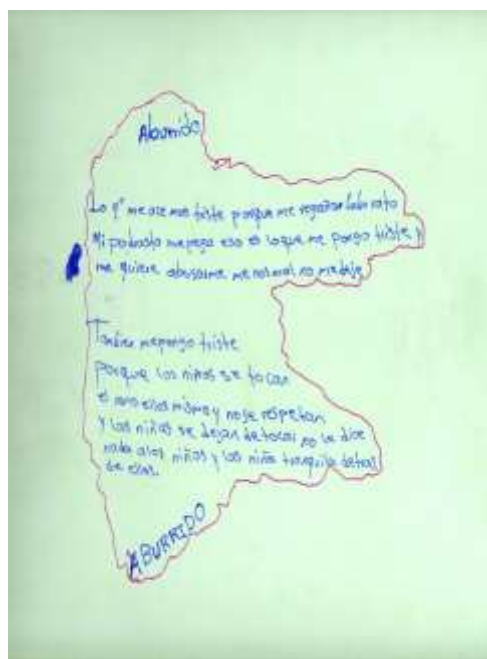 Aburrido
Lo q' me ase mas triste porque me regañan cada rato
Mi padrasto me pega eso es lo que me pongo triste y
me quiere abusarme me no mal no me deje
Tanbien me pongo triste
porque los niños se tocan
el ano ellos mismo y no se respetan
y las niñas se dejan de tocar no le dice
nada a los niños y las niña tranquila detras
de ellos.
ABURRIDO